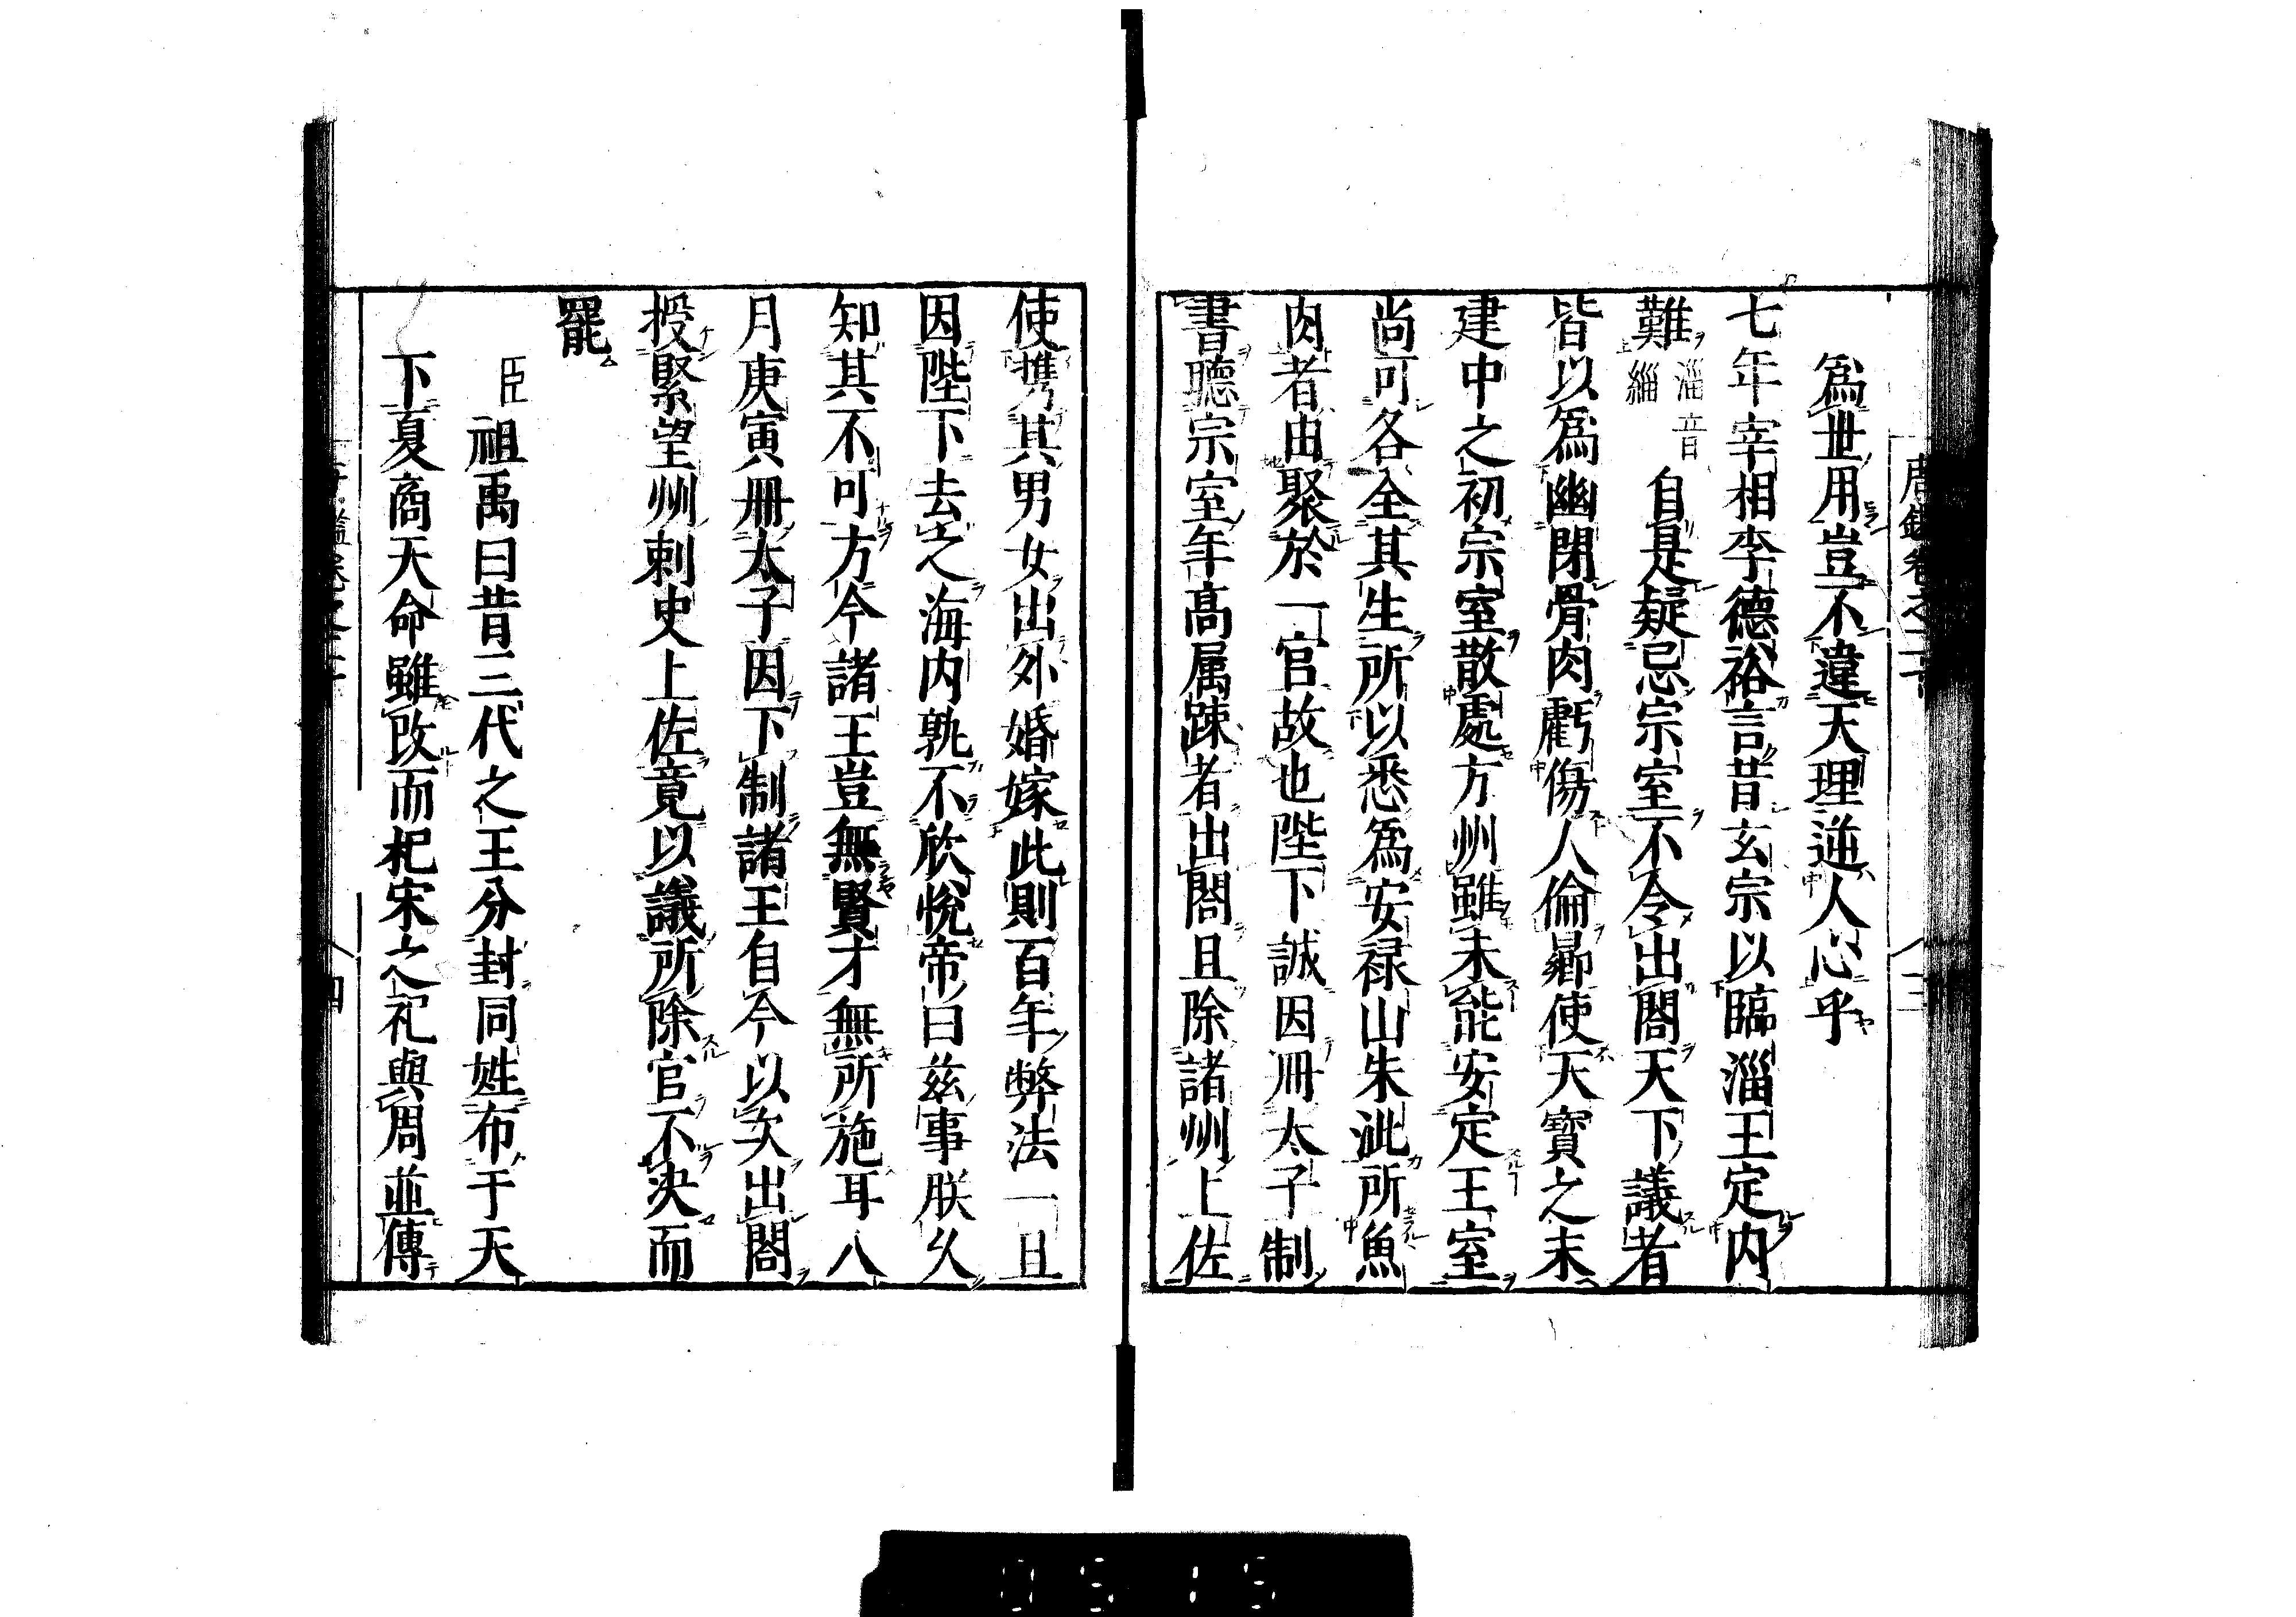 爲世用豈不違天理逆人心乎
七年宰相李德裕言昔玄宗以臨淄王定内
難淄音緇自是疑忌宗室不令出閤天下議者
皆以爲幽閉骨肉虧傷人倫曏使天寶之末
建中之初宗室散處方州雖未能安定王室
尚可各全其生所以悉爲安禄山朱泚所魚
肉者由聚於一宫故也陛下誠因冊太子制
書聽宗室年髙属踈者出閤且除諸州上佐
使携其男女出外婚嫁此則百年弊法一旦
因陛下去之海内孰不欣悦帝曰兹事朕久
知其不可方今諸王豈無賢才無所施耳八
月庚寅冊太子因下制諸王自今以次出閤
授緊望州刺史上佐竟以議所除官不决而
罷
臣祖禹曰昔三代之王分封同姓布于天
下夏商天命雖改而杞宋之祀與周並傳